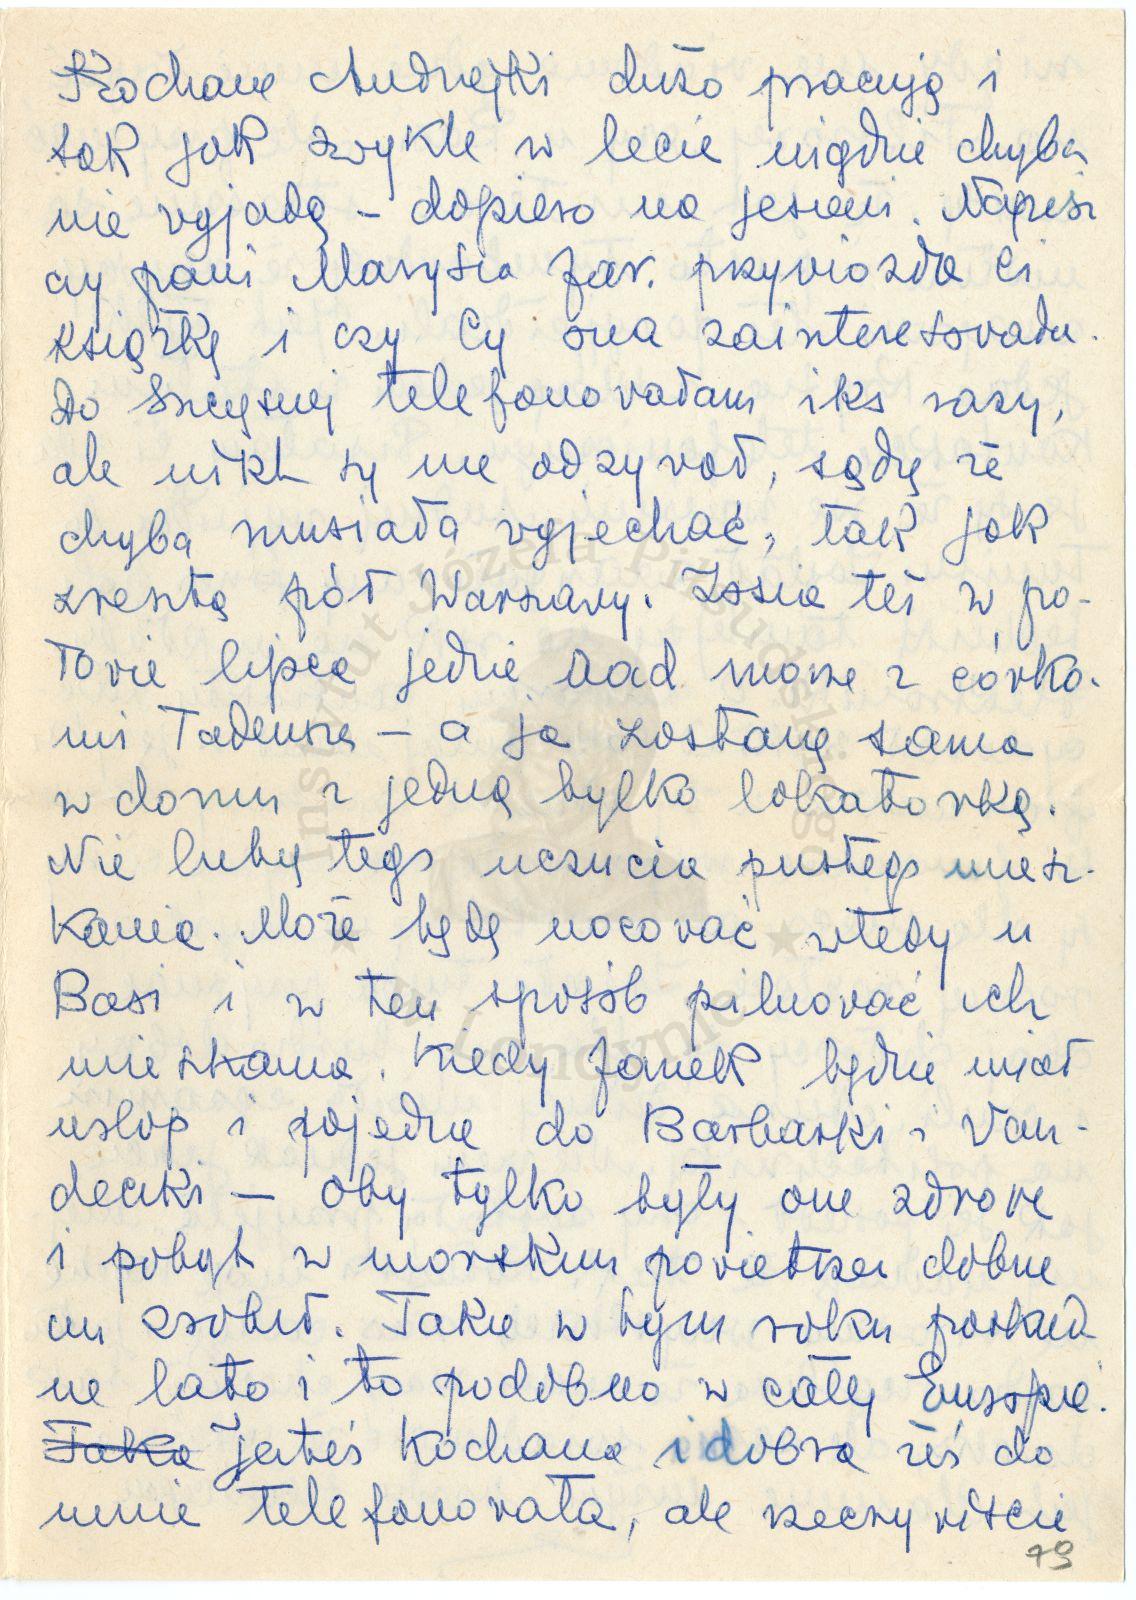 Kochane Andrzejki dużo pracują i
tak jak zwykle w lecie nigdzie chyba
nie wyjadą – dopiero na jesieni. Napisz
czy pani Marysia Jar. przywiozła Ci
książkę i czy Cę ona zainteresowała.
Do Szczęsnej telefonowałam iks razy,
ale nikt się nie odzywał, sądzę że
chyba musiała wyjechać, tak jak
zresztą pół Warszawy. Zosia też w po-
łowie lipca jedzie nad morze z córka-
mi Tadeusza – a ja zostanę sama
w domu z jedną tylko lokatorką.
Nie lubię tego uczucia pustego miesz-
kania. Może będę nocować wtedy u
Basi i w ten sposób pilnować ich
mieszkania. Kiedy Janek będzie miał
urlop i pojedzie do Barbarki i Wan-
deczki – oby tylko były one zdrowe
i pobyt w morskim powietrzu dobrze
im zrobił. Takie w tym roku paskud-
ne lato i to podobno w całej Europie.
Taka jesteś kochana i dobra żeś do
mnie telefonowała, ale rzeczywiście
79
Instytut Józefa Piłsudskiego
w Londynie